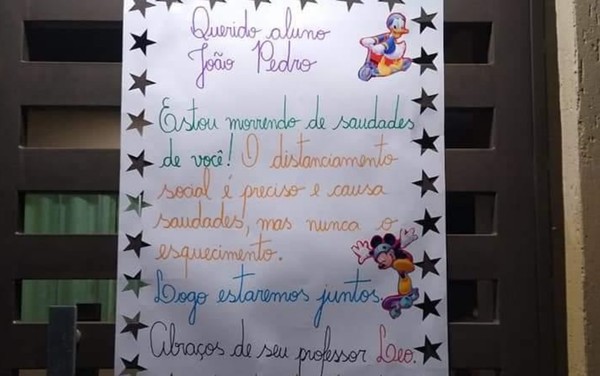 Querido aluno
João Pedro
Estou morrendo de saudades
de você! O distanciamento
social é preciso e causa
saudades, mas nunca o
esquecimento.
Logo estaremos juntos.
Abraços de seu professor Leo.